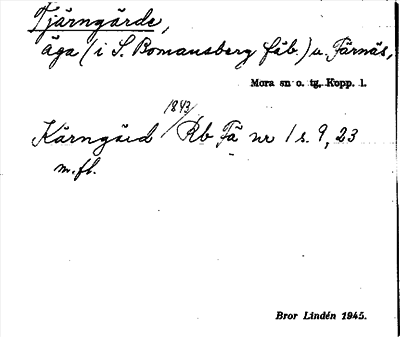 Tjärngärde,
äga (i S. Bomansberg fäb.) u. Färnäs,
Mora sn o. tg, Kopp. l.
1843/
Kärngärd Rb Fä nr 1 s. 9, 23
m. fl.
Bror Lindén 1945.